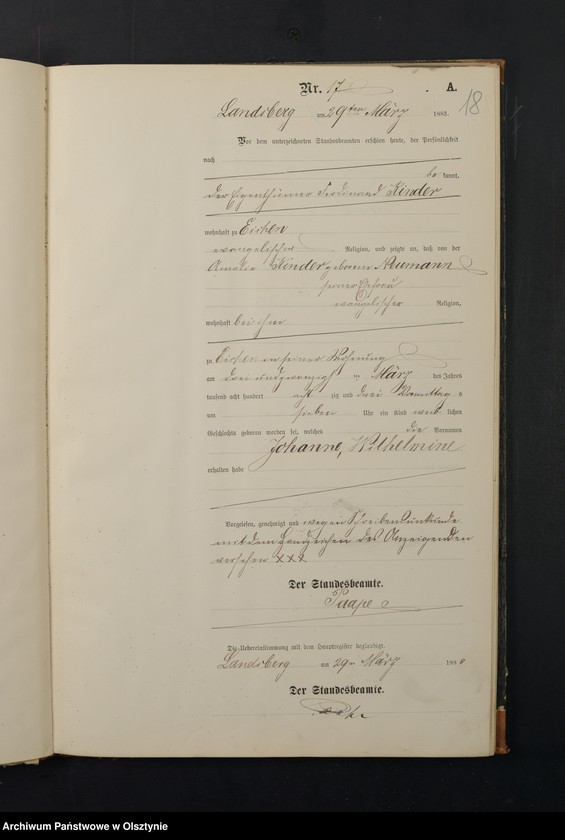 Nr. 17 A.
18
Landsberg am 29ten März 1883.
Vor dem unterzeichneten Standesbeamten erschien heute, der Persönlichkeit
nach
be kannt,
der Eigenthümer Ferdinand Kinder
wohnhaft zu Eichen
evangelischer Religion, und zeigte an, daß von der
Amalie Kinder geborene Neumann
seiner Ehefrau
evangelischer Religion,
wohnhaft bei ihm
zu Eichen in seiner Wohnung
am drei und zwanzigst en März des Jahres
tausend acht hundert acht zig und drei Vormittag s
um sieben Uhr ein Kind weib lichen
Geschlechts geboren worden sei, welches die Vornamen
Johanne, Wilhelmine
erhalten habe
Vorgelesen, genehmigt und wegen Schreibensunkunde
mit dem Handzeichen des Anzeigenden
versehen XXX
Der Standesbeamte.
Paape
Die Uebereinstimmung mit dem Hauptregister beglaubigt.
Landsberg am 29ten März 188
Der Standesbeamte.
Archiwum Państwowe w Olsztynie